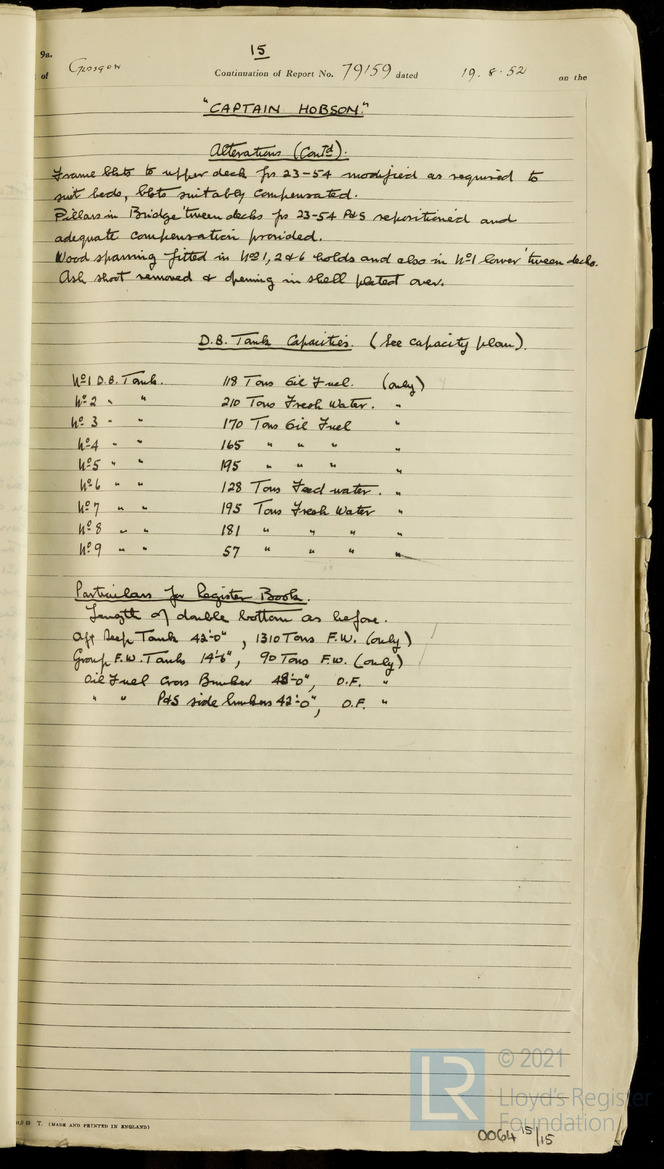 15
9a.
of Glasgow Continuation of Report No. 79159 dated 19.8.52 on the
"CAPTAIN HOBSON."
Alterations (Contd):
Frame bkts to upper deck frs 23-54 modified as required to
suit beds, bkts suitably compensated.
Pillars in Bridge 'tween decks frs 23-54 P&S repositioned and
adequate compensation provided.
Wood sparring fitted in Nos 1, 2 & 6 holds and also in No 1 lower 'tween decks.
Ash shoot removed & opening in shell plated over.
D.B. Tank Capacities. (See capacity plan).
No 1 D.B. Tank. 118 Tons Oil Fuel. (only)
No 2 " " 210 Tons Fresh Water. "
No 3 " " 170 Tons Oil Fuel "
No 4 " " 165 " " " "
No 5 " " 195 " " " "
No 6 " " 128 Tons Feed water. "
No 7 " " 195 Tons Fresh Water "
No 8 " " 181 " " " "
No 9 " " 57 " " " "
Particulars for Register Book.
Length of double bottom as before.
Aft Deep Tank 42'-0", 1310 Tons F.W. (only)
Group F.W. Tanks 14'-6", 90 Tons F.W. (only)
Oil Fuel Cross Bunker 48'-0", O.F. "
" " P&S side bunkers 42'-0", O.F. "
T. (MADE AND PRINTED IN ENGLAND)
LR © 2021
Lloyd's Register
Foundation
0064 15/15